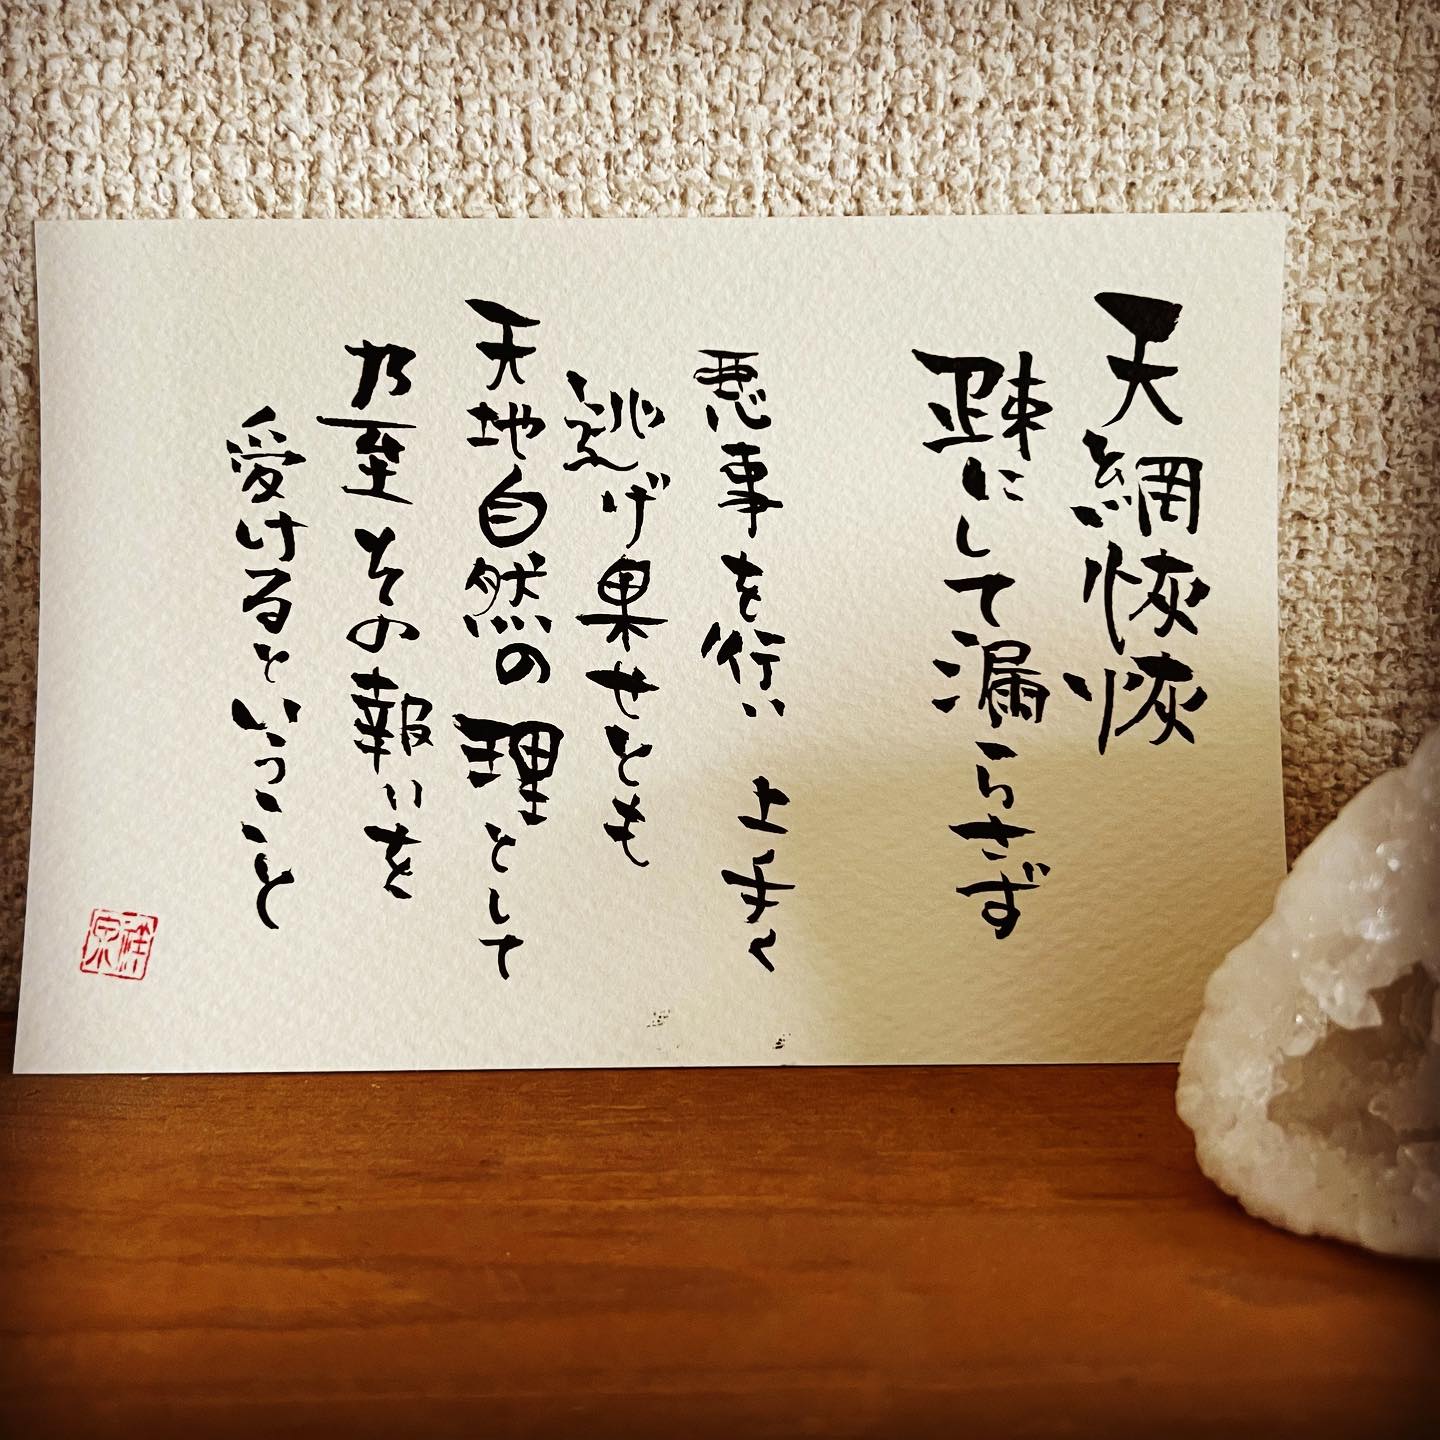 天網恢恢
疎にして漏らさず
悪事を行い 上手く
逃げ果せとも
天地自然の理として
乃至その報いを
愛けるということ